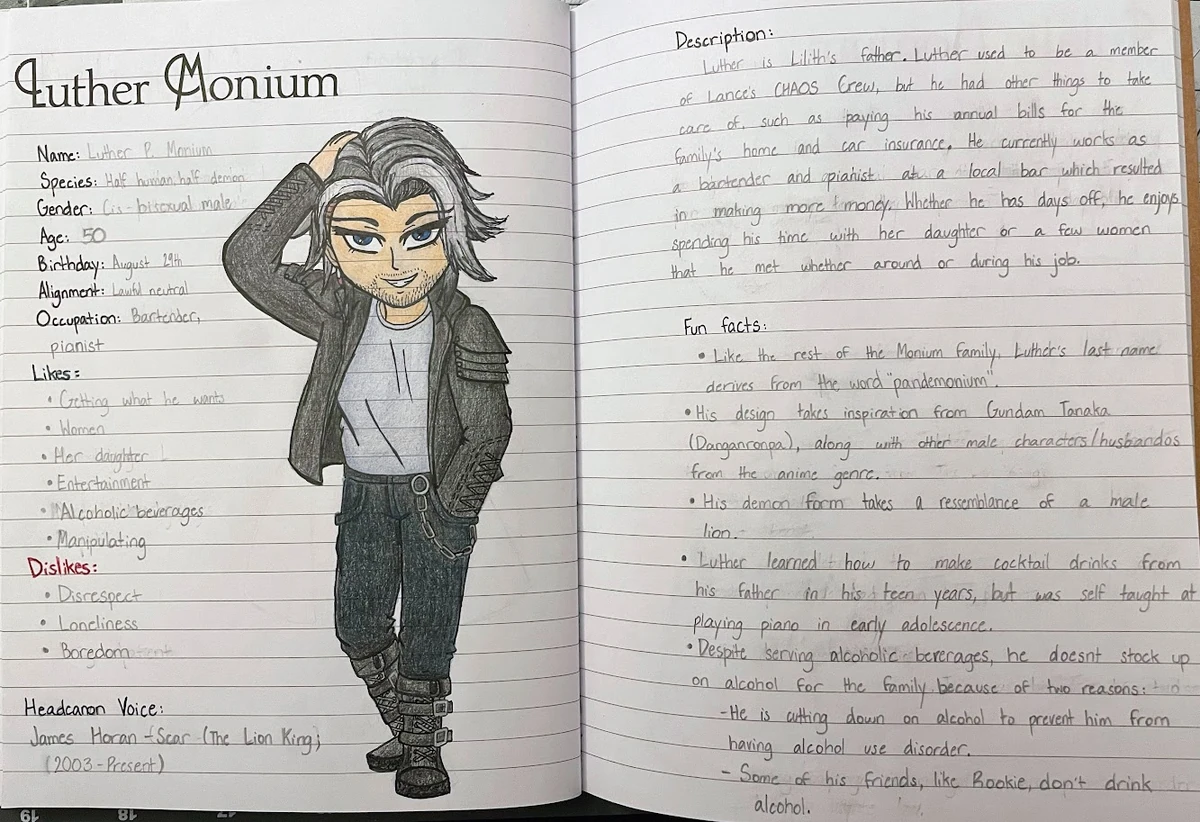 Luther Monium
Name: Luther P. Monium
Species: Half human, half demon
Gender: Cis-bisexual male
Age: 50
Birthday: August 29th
Alignment: Lawful neutral
Occupation: Bartender,
pianist
Likes:
• Getting what he wants
• Women
• Her daughter
• Entertainment
• Alcoholic beverages
• Manipulating
Dislikes:
• Disrespect
• Loneliness
• Boredom
Headcanon Voice:
James Horan - Scar (The Lion King;
(2003-Present)
Description:
Luther is Lilith's father. Luther used to be a member
of Lance's CHAOS Crew, but he had other things to take
care of, such as paying his annual bills for the
family's home and car insurance. He currently works as
a bartender and pianist at a local bar which resulted
in making more money. Whether he has days off, he enjoys
spending his time with her daughter or a few women
that he met whether around or during his job.
Fun facts:
• Like the rest of the Monium family, Luther's last name
derives from the word "pandemonium".
• His design takes inspiration from Gundam Tanaka
(Danganronpa), along with other male characters/husbandos
from the anime genre.
• His demon form takes a ressemblance of a male
lion.
• Luther learned how to make cocktail drinks from
his father in his teen years, but was self taught at
playing piano in early adolescence.
• Despite serving alcoholic beverages, he doesnt stock up
on alcohol for the family because of two reasons:
- He is cutting down on alcohol to prevent him from
having alcohol use disorder.
- Some of his friends, like Rookie, don't drink
alcohol.
19
18
17